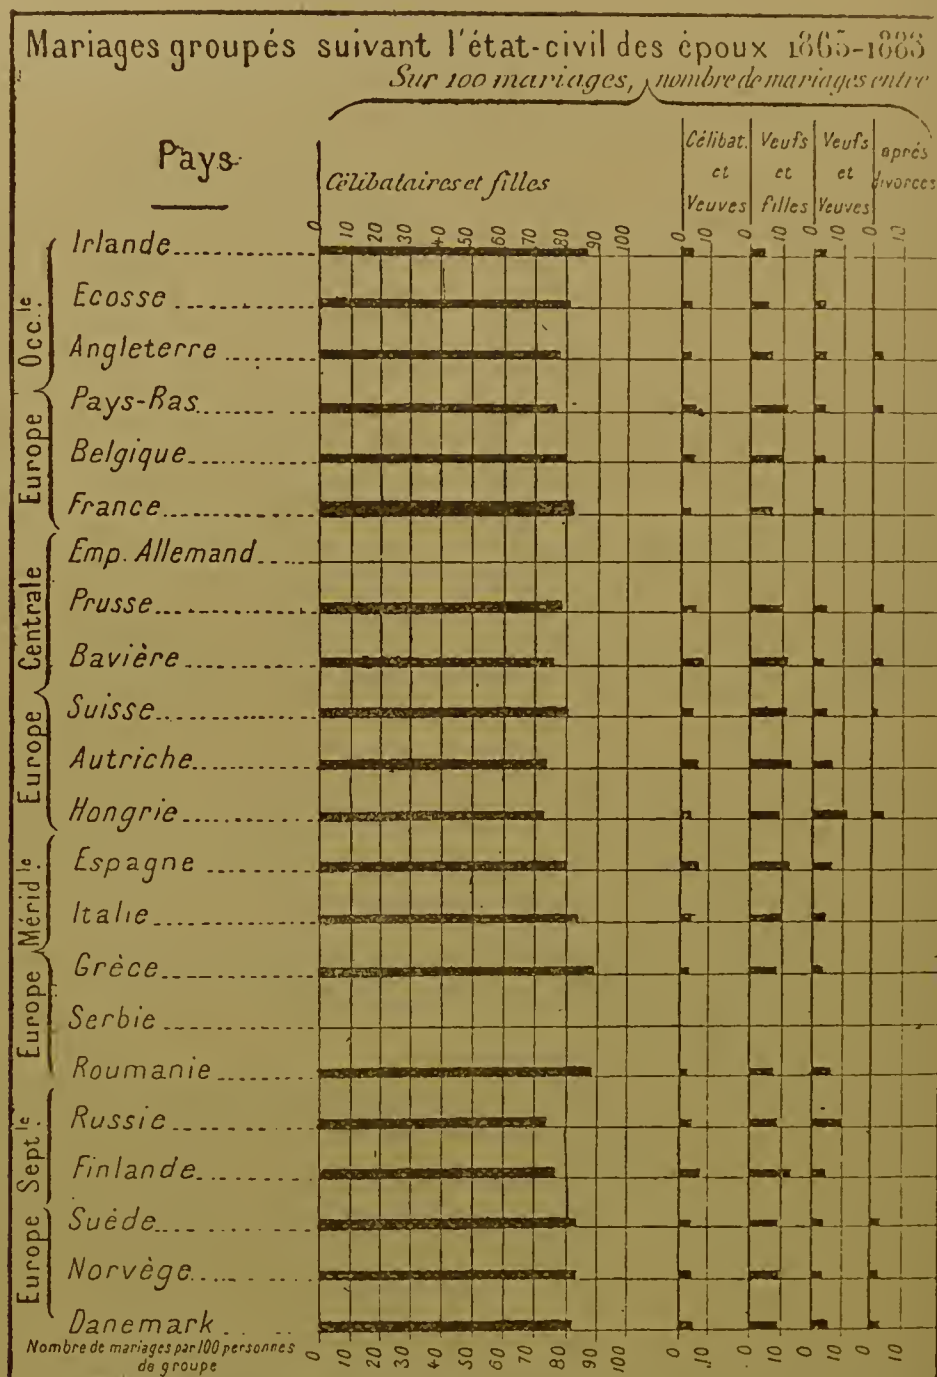 Mariages groupés suivant l'état-civil des époux 1865-1883
Sur 100 mariages, nombre de mariages entre
Pays
Célibataires et filles
Célibat. et Veuves
Veufs et filles
Veufs et Veuves
après divorces
0 10 20 30 40 50 60 70 80 90 100 0 10 0 10 0 10 0 10
Europe Occ.le
Irlande
Ecosse
Angleterre
Pays-Bas
Belgique
France
Europe Centrale
Emp. Allemand
Prusse
Bavière
Suisse
Autriche
Hongrie
Europe Mérid.le
Espagne
Italie
Grèce
Serbie
Roumanie
Europe Sept.le
Russie
Finlande
Suède
Norvège
Danemark
Nombre de mariages par 100 personnes
de groupe
0 10 20 30 40 50 60 70 80 90 100 0 10 0 10 0 10 0 10